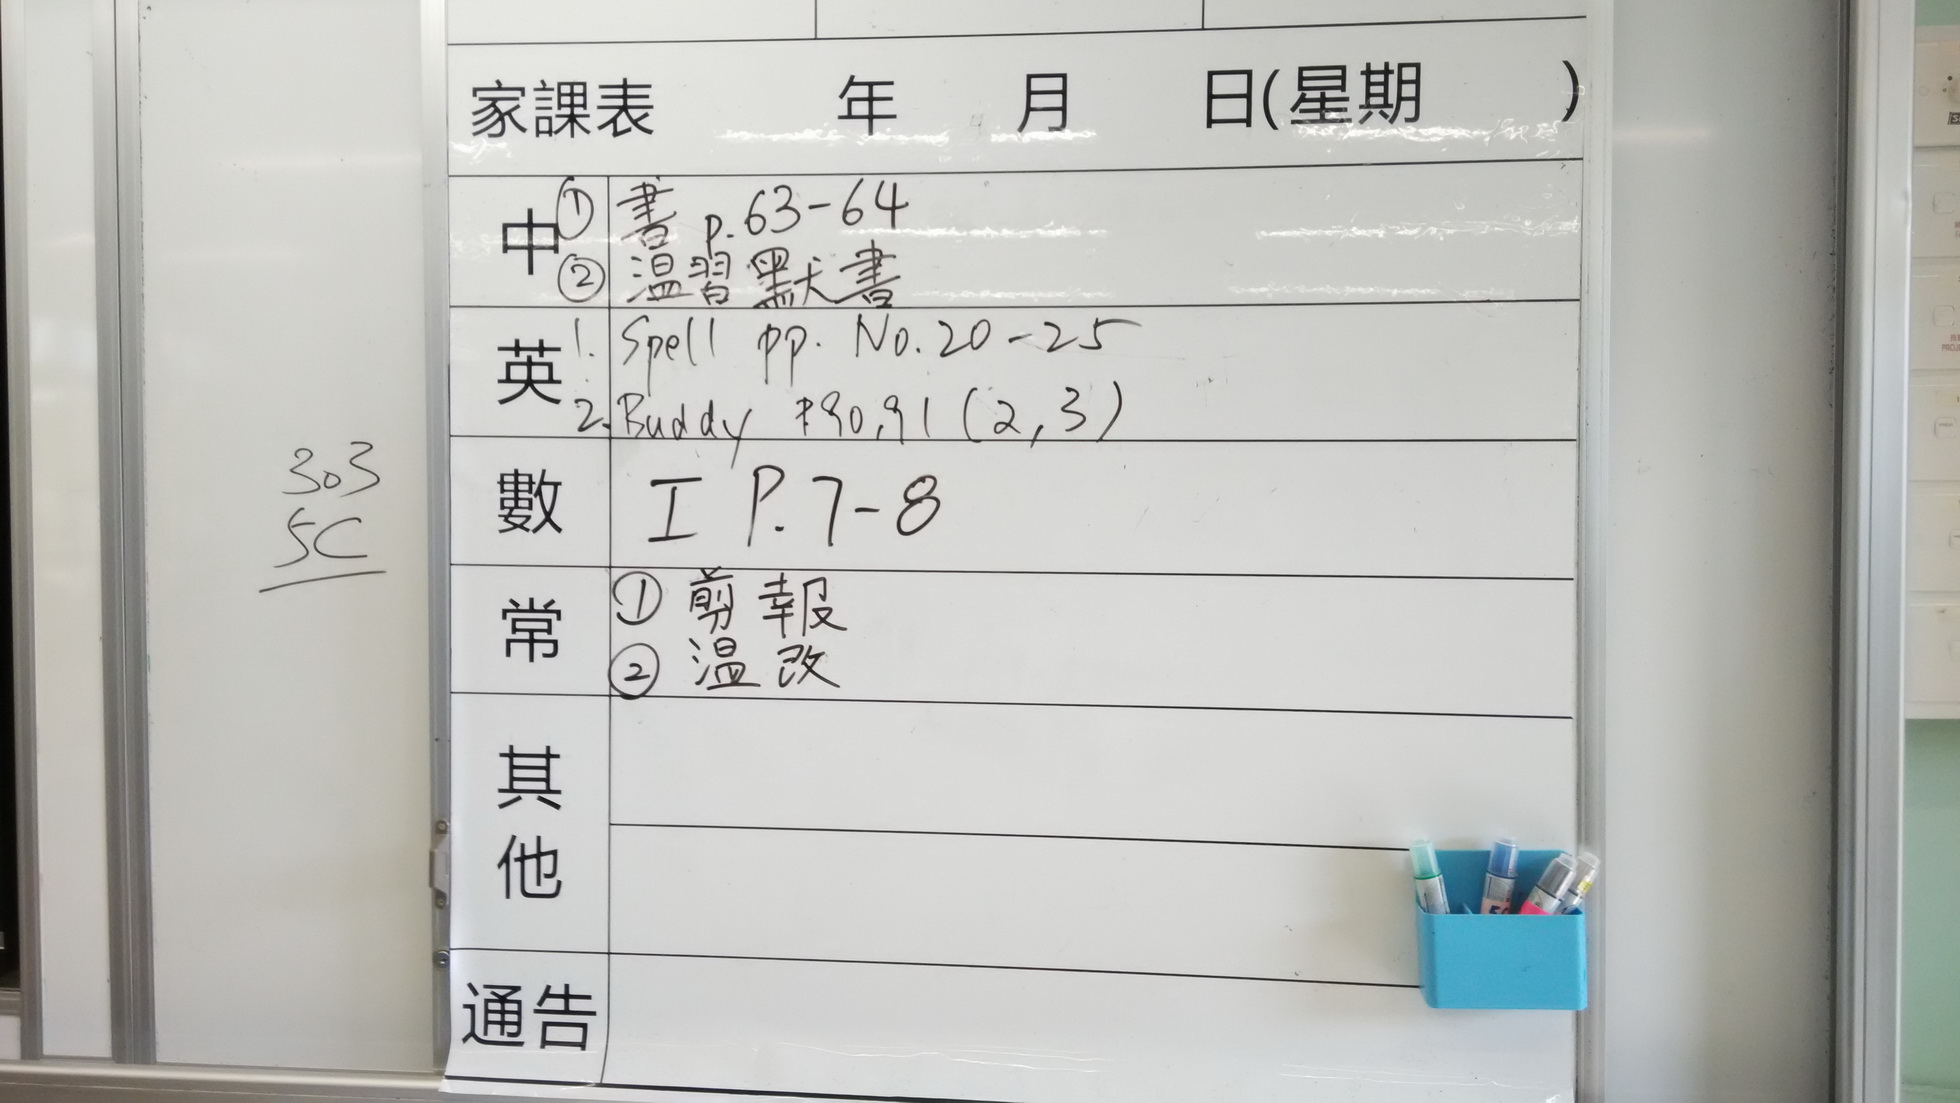 家課表 年 月 日(星期 )
中 ① 書 p.63-64
② 温習默書
英 1. Spell pp. No.20-25
2. Buddy P90,91 (2,3)
數 I P.7-8
常 ① 剪報
② 温改
其他
通告
303
5C